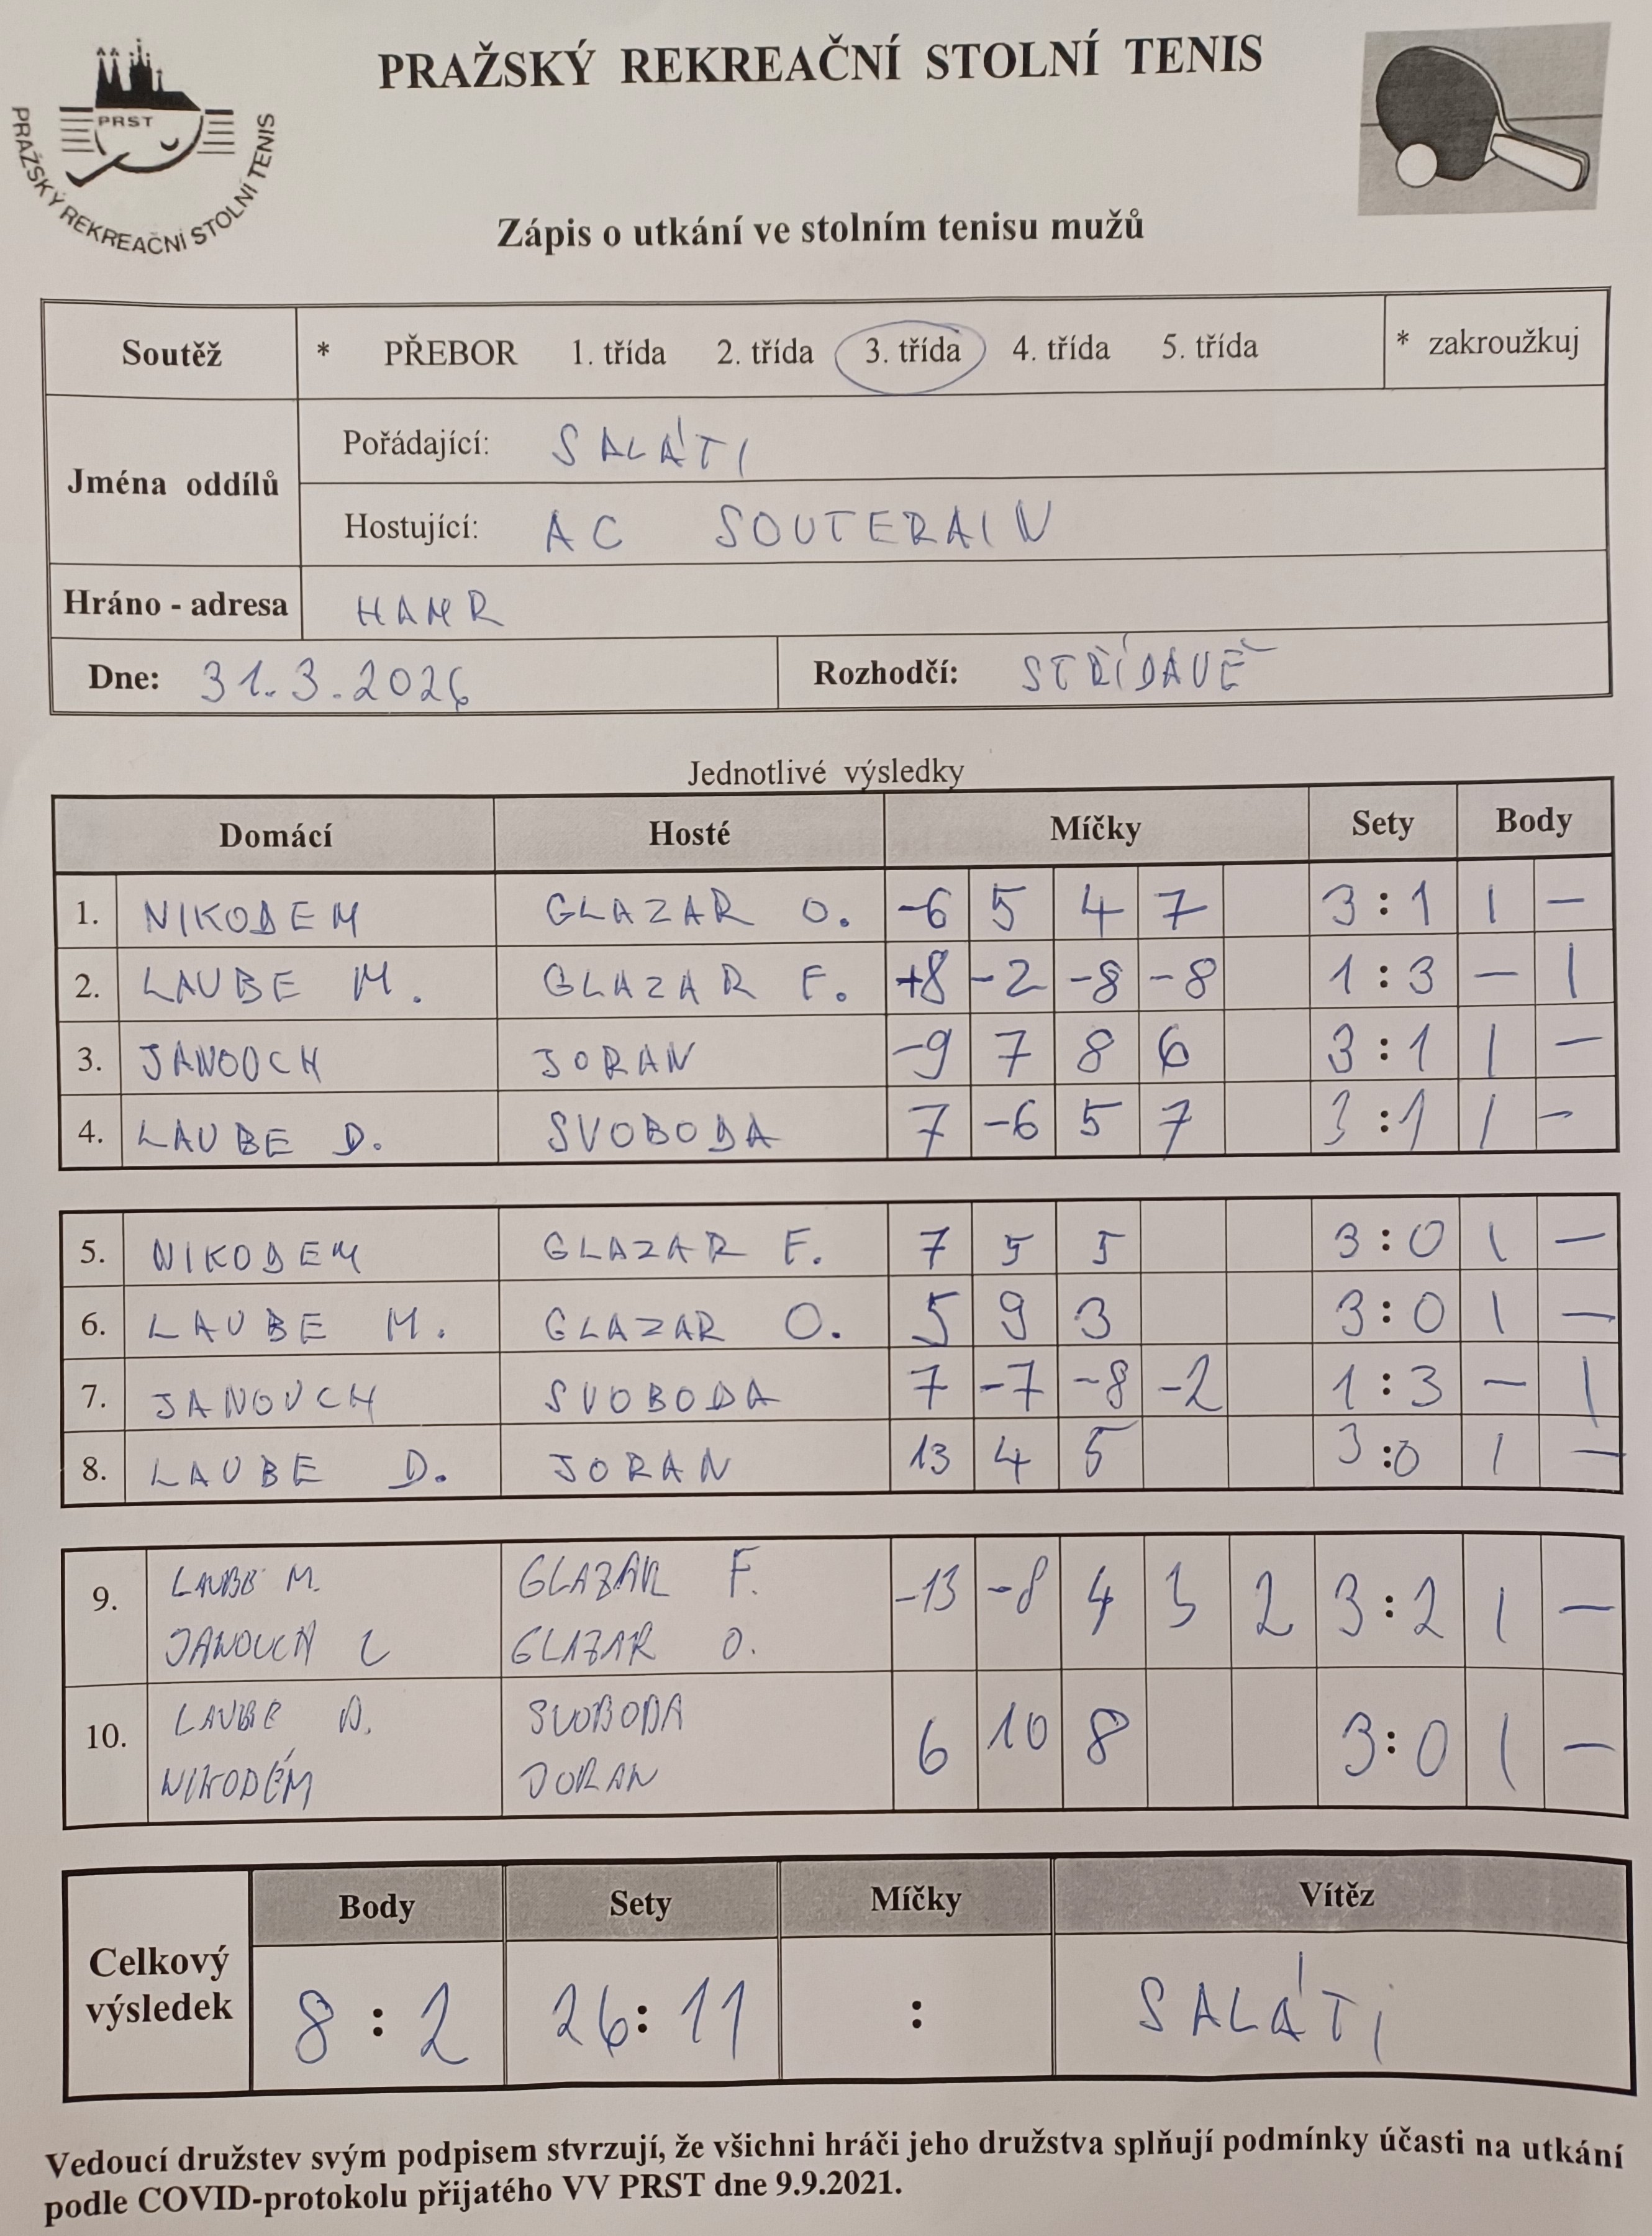 PRAŽSKÝ REKREAČNÍ STOLNÍ TENIS
PRST
PRAŽSKÝ REKREAČNÍ STOLNÍ TENIS
Zápis o utkání ve stolním tenisu mužů
Soutěž * PŘEBOR 1. třída 2. třída 3. třída 4. třída 5. třída * zakroužkuj
Jména oddílů
Pořádající: SALÁTI
Hostující: AC SOUTERAIN
Hráno - adresa HAMR
Dne: 31.3.2026 Rozhodčí: STŘÍDAVĚ
Jednotlivé výsledky
Domácí Hosté Míčky Sety Body
1. NIKODEM GLAZAR O. -6 5 4 7 3:1 1 -
2. LAUBE M. GLAZAR F. +8 -2 -8 -8 1:3 - 1
3. JANOUCH JORAN -9 7 8 6 3:1 1 -
4. LAUBE D. SVOBODA 7 -6 5 7 3:1 1 -
5. NIKODEM GLAZAR F. 7 5 5 3:0 1 -
6. LAUBE M. GLAZAR O. 5 9 3 3:0 1 -
7. JANOUCH SVOBODA 7 -7 -8 -2 1:3 - 1
8. LAUBE D. JORAN 13 4 5 3:0 1 -
9. LAUBE M. GLAZAR F. -13 -8 4 3 2 3:2 1 -
JANOUCH GLAZAR O.
10. LAUBE D. SVOBODA 6 10 8 3:0 1 -
NIKODÉM JORAN
Body Sety Míčky Vítěz
Celkový výsledek 8:2 26:11 : SALÁTI
Vedoucí družstev svým podpisem stvrzují, že všichni hráči jeho družstva splňují podmínky účasti na utkání
podle COVID-protokolu přijatého VV PRST dne 9.9.2021.